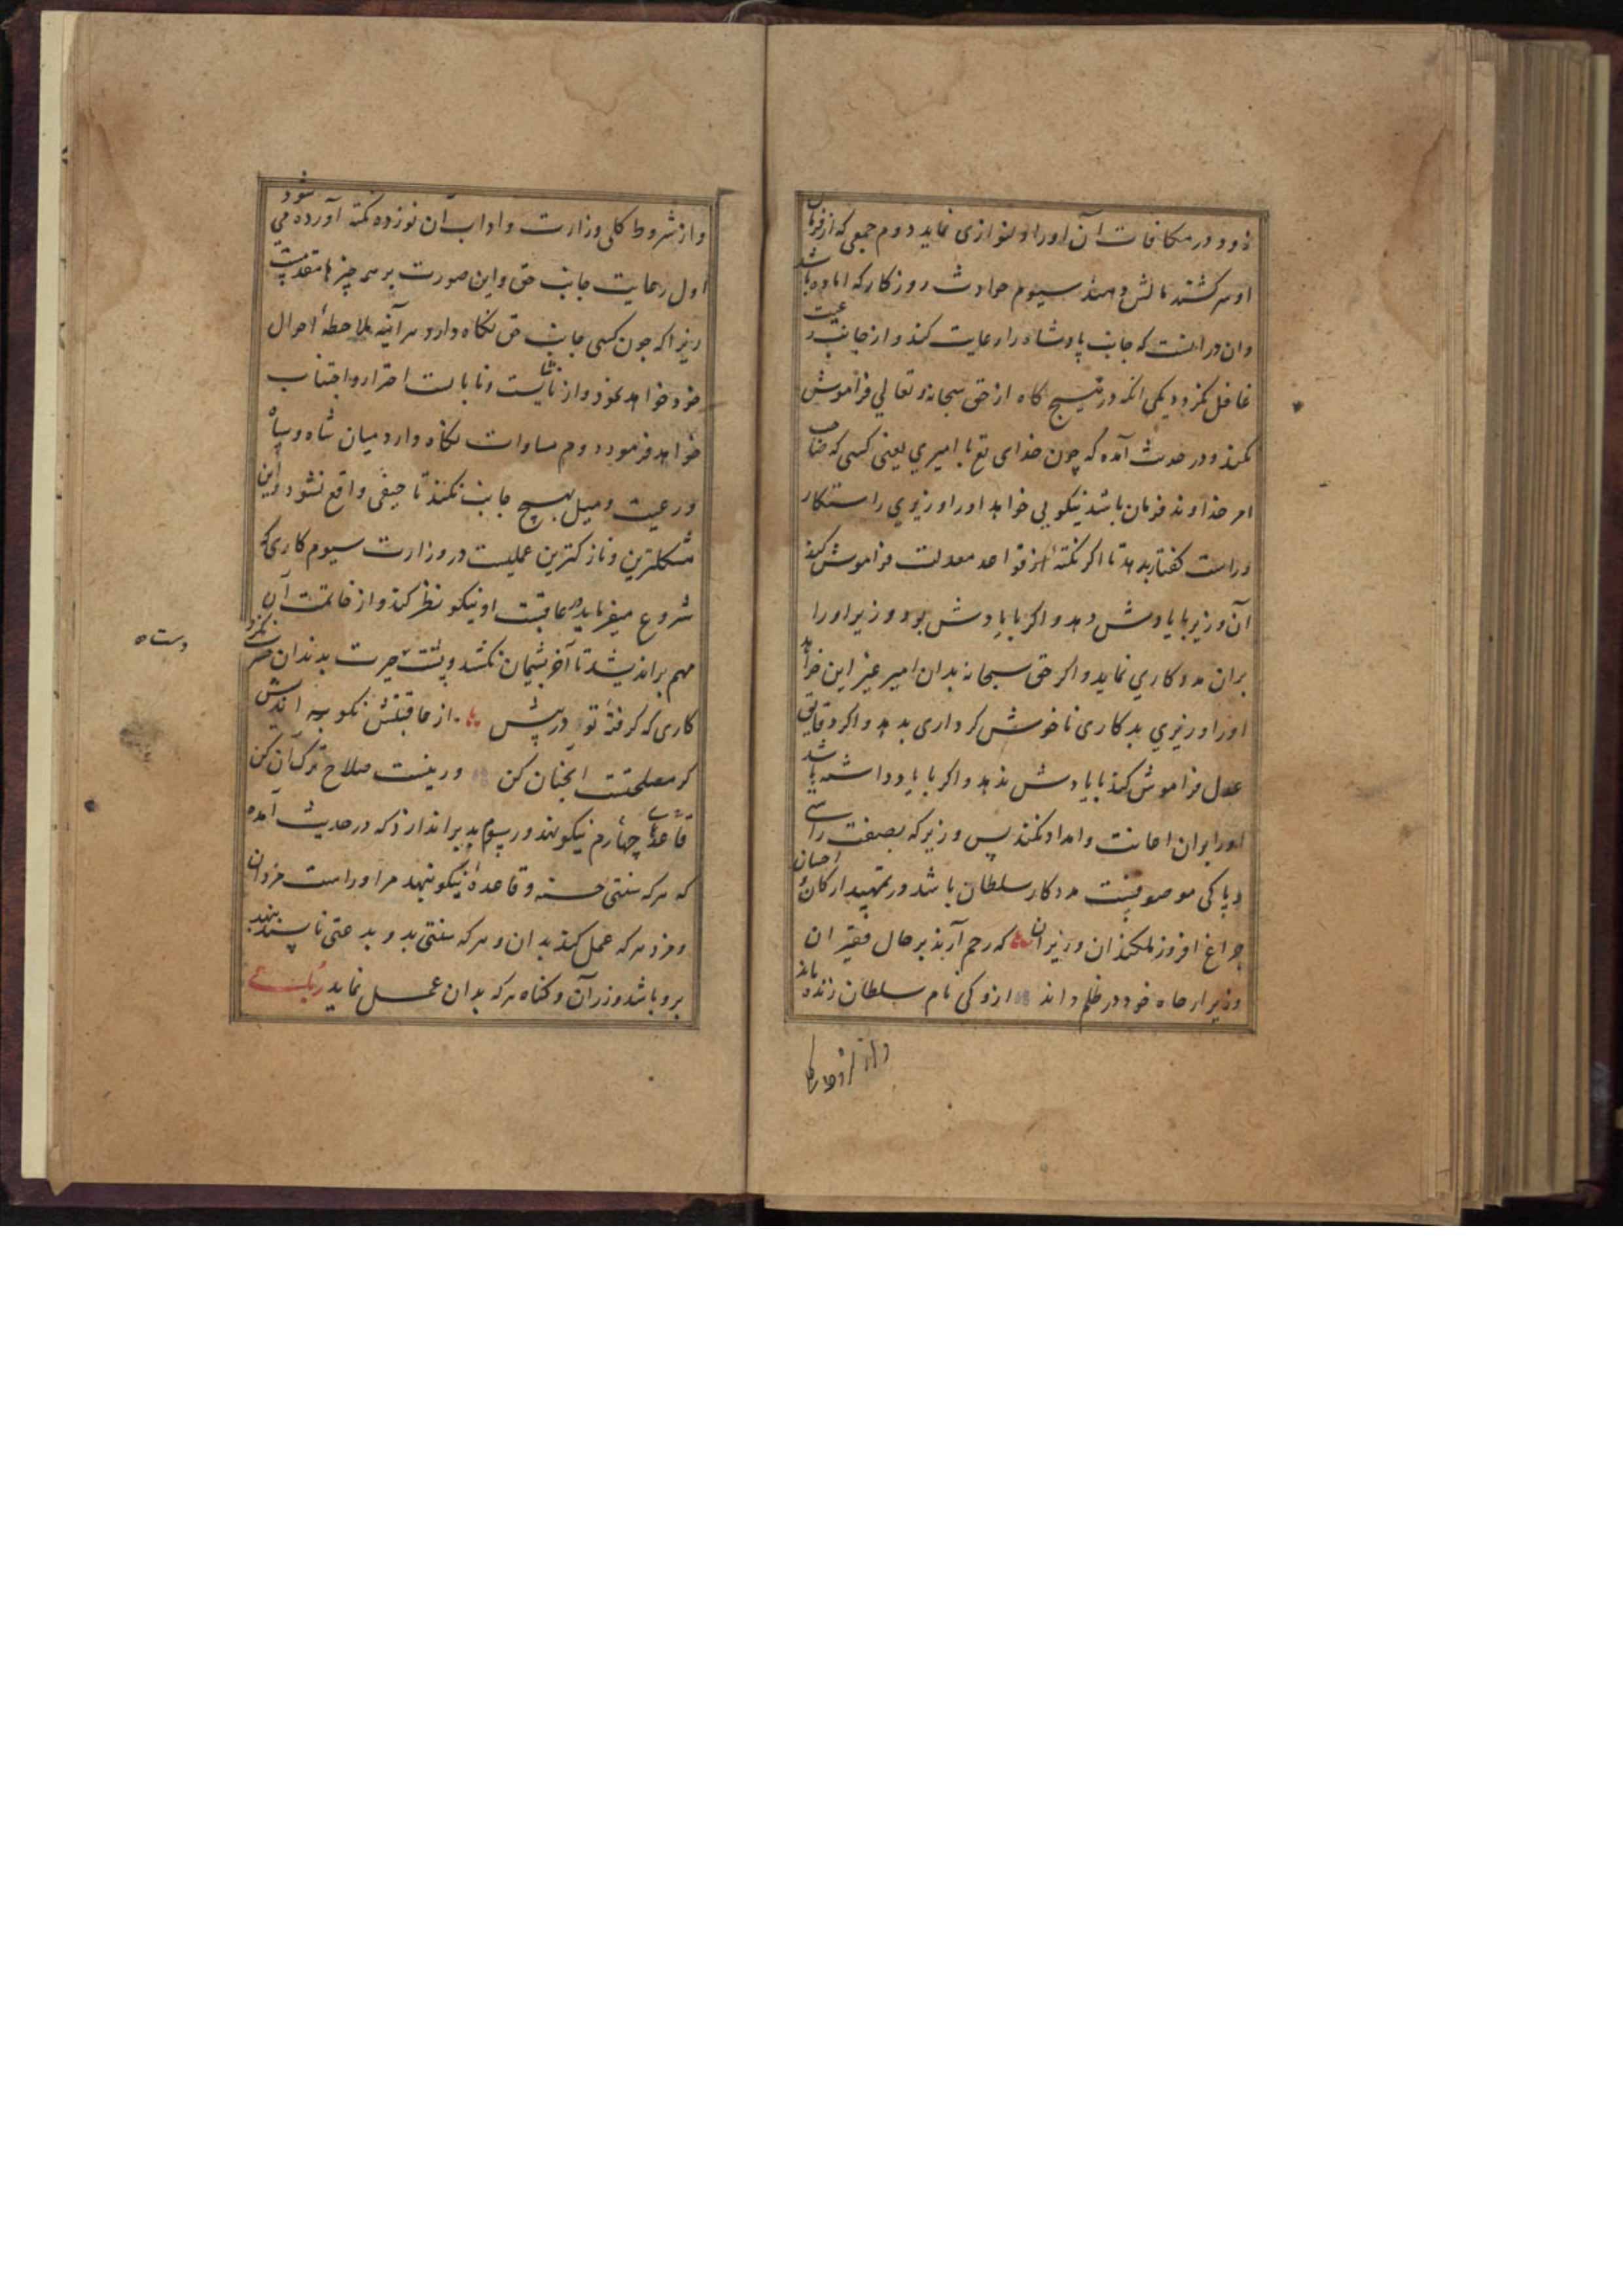 دوود در مکافات آن اورا دلنوازی نماید دوم جمعی که از فرمان
او سرکشند مالش دهند سیوم حوادث روزکار که اماده باشد
وان در انست که جانب پادشاه را رعایت کند و از جانب رعیت
غافل نکردد یکی انکه در هیچ کاه از حق سبحانه و تعالی فراموش
نکند و در حدیث آمده که چون خدای تع با امیری یعنی کسی که صاحب
امر خداوند فرمان باشد نیکویی خواهد اورا وزیری راستکار
و راست کفتار بدهد تا اکر نکته از قواعد معدلت فراموش کند
آن وزیر با یادش دهد و اکر با یادش بود وزیر اورا
بران مددکاری نماید و اکر حق سبحانه بدان امیر غیر این خواهد
اورا وزیری بدکاری ناخوش کرداری بدهد و اکر دقایق
عدل فراموش کند با یادش ندهد و اکر با یاد داشته باشد
اورا بران اعانت و امداد نکند پس وزیر که بصفت راستی
و پاکی موصوفست مددکار سلطان باشد در تمهید ارکان احسان
چراغ افروز ملکند ان وزیران که رحم آرند بر حال فقیران
وزیر ار جاه خود در ظلم داند ازو کی نام سلطان زنده ماند
و از شروط کلی
و از شروط کلی وزارت و اداب آن نوزده نکته آورده می شود
اول رعایت جانب حق و این صورت بر همه چیزها مقدمست
زیرا که چون کسی جانب حق نکاه دارد هر آینه ملاحظهٔ احوال
خود خواهد نمود و از ناشایست و نابایست احتراز و اجتناب
خواهد فرمود دوم مساوات نکاه دارد میان شاه و سپاه
و رعیت و میل بهیچ جانب نکند تا حیفی واقع نشود و این
مشکلترین و نازکترین عملیست در وزارت سیوم کاری که
شروع میفرماید در عاقبت او نیکو نظر کند و از خاتمت آن
مهم براندیشد تا آخر پشیمان نکشد و پشت حیرت بدندان حسرت نکزد
دست
کاری که کرفتهٔ تو در پیش از عاقبتش نکو بیندیش
کر مصلحتت انچنان کن ور نیست صلاح ترک آن کن
چهارم قاعدهای نیکو نهد و رسوم بد براندازد که در حدیث آمده
که هر که سنتی حسنه و قاعدهٔ نیکو بنهد مر اوراست مزد ان
و مزد هر که عمل کند بدان و هر که سنتی بد و بدعتی ناپسند بنهد
برو باشد وزر آن و کناه هر که بدان عمل نماید